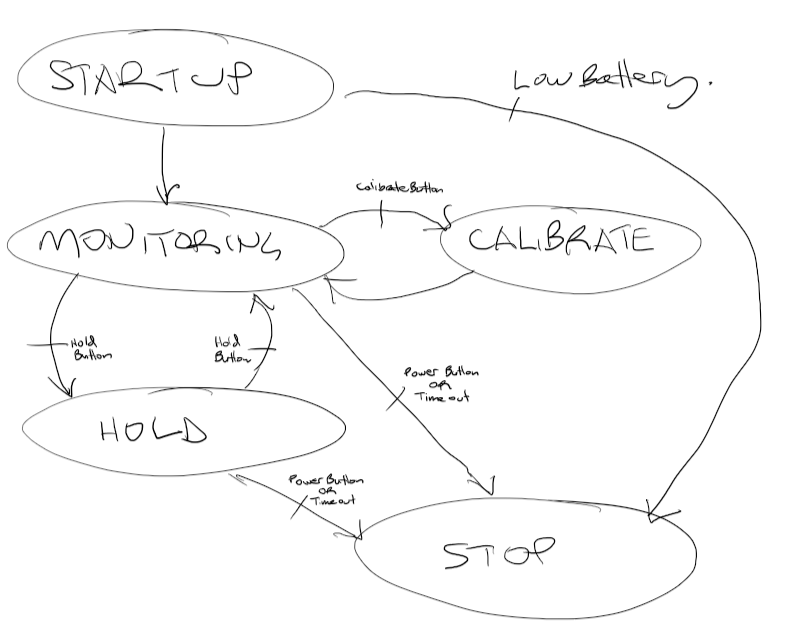 STARTUP
Low Battery.
Calibrate Button
MONITORING
CALIBRATE
Hold
Button
Hold
Button
Power Button
OR
Timeout
HOLD
Power Button
OR
Timeout
STOP